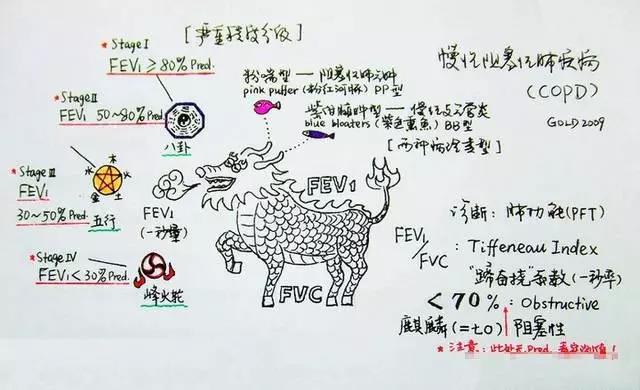 [严重程度分级]
*Stage I
FEV₁ ≥ 80% Pred.
八卦
*Stage II
FEV₁ 50~80% Pred.
*Stage III
FEV₁
30~50% Pred.
木
火
水
金
土
五行
*Stage IV
FEV₁ < 30% Pred.
烽火轮
FEV₁
(一秒量)
粉喘型 — 阻塞性肺气肿
pink puffer (粉红河豚) PP型
紫绀臃肿型 — 慢性支气管炎
blue bloaters (紫色熏鱼) BB型
[两种病理类型]
FEV₁
FVC
慢性阻塞性肺疾病
(COPD)
GOLD 2009
诊断: 肺功能(PFT)
FEV₁/FVC : Tiffeneau Index
"蹄音挠系数(一秒率)
< 70% : Obstructive
麒麟(=七0) 阻塞性
*注意: 此处无 Pred.